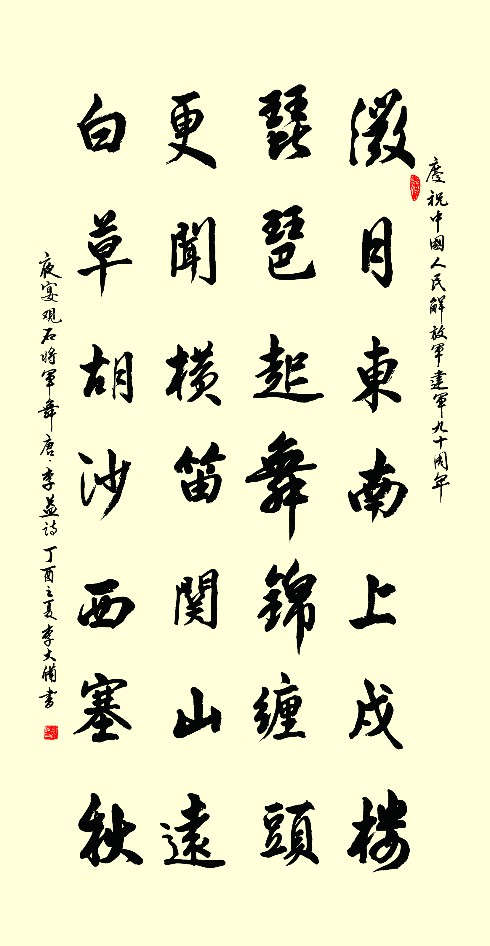 慶祝中國人民解放軍建軍九十周年
微月東南上戍楼
琵琶起舞錦缠頭
更聞横笛関山遠
白草胡沙西塞秋
夜宴观石将軍舞 唐·李益诗 丁酉之夏李大書